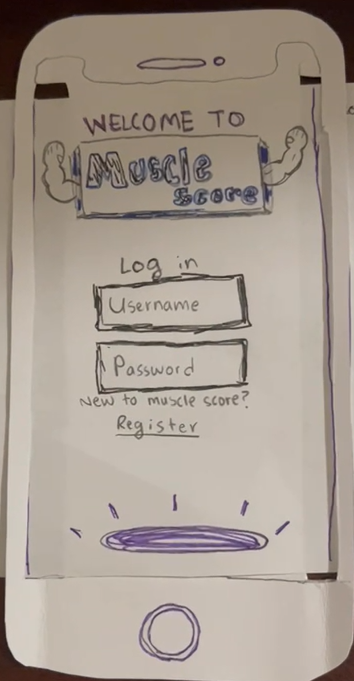 WELCOME TO
Muscle
Score
Log in
Username
Password
New to muscle score?
Register